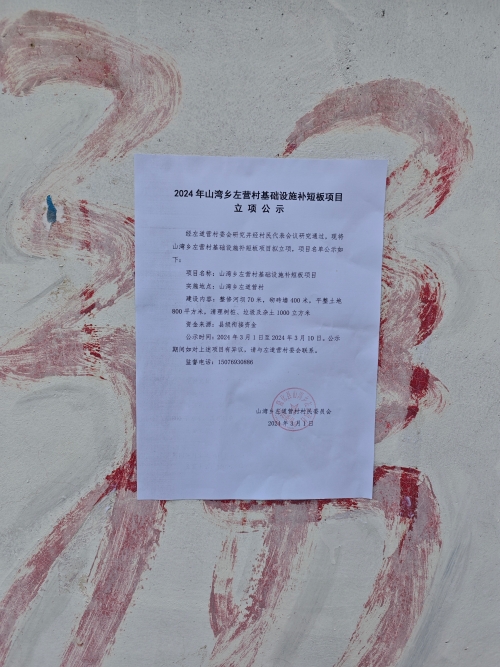 2024年山湾乡左营村基础设施补短板项目
立项公示
经左道营村委会研究并经村民代表会议研究通过，现将
山湾乡左营村基础设施补短板项目拟立项。项目名单公示如
下：
项目名称：山湾乡左营村基础设施补短板项目
实施地点：山湾乡左道营村
建设内容：整修河坝70米，砌砖墙400米，平整土地
800平方米，清理树桩、垃圾及杂土1000立方米
资金来源：县级衔接资金
公示时间：2024年3月1日至2024年3月10日。公示
期间如对上述项目有异议，请与左道营村委会联系。
监督电话：15076930886
山湾乡左道营村村民委员会
2024年3月1日